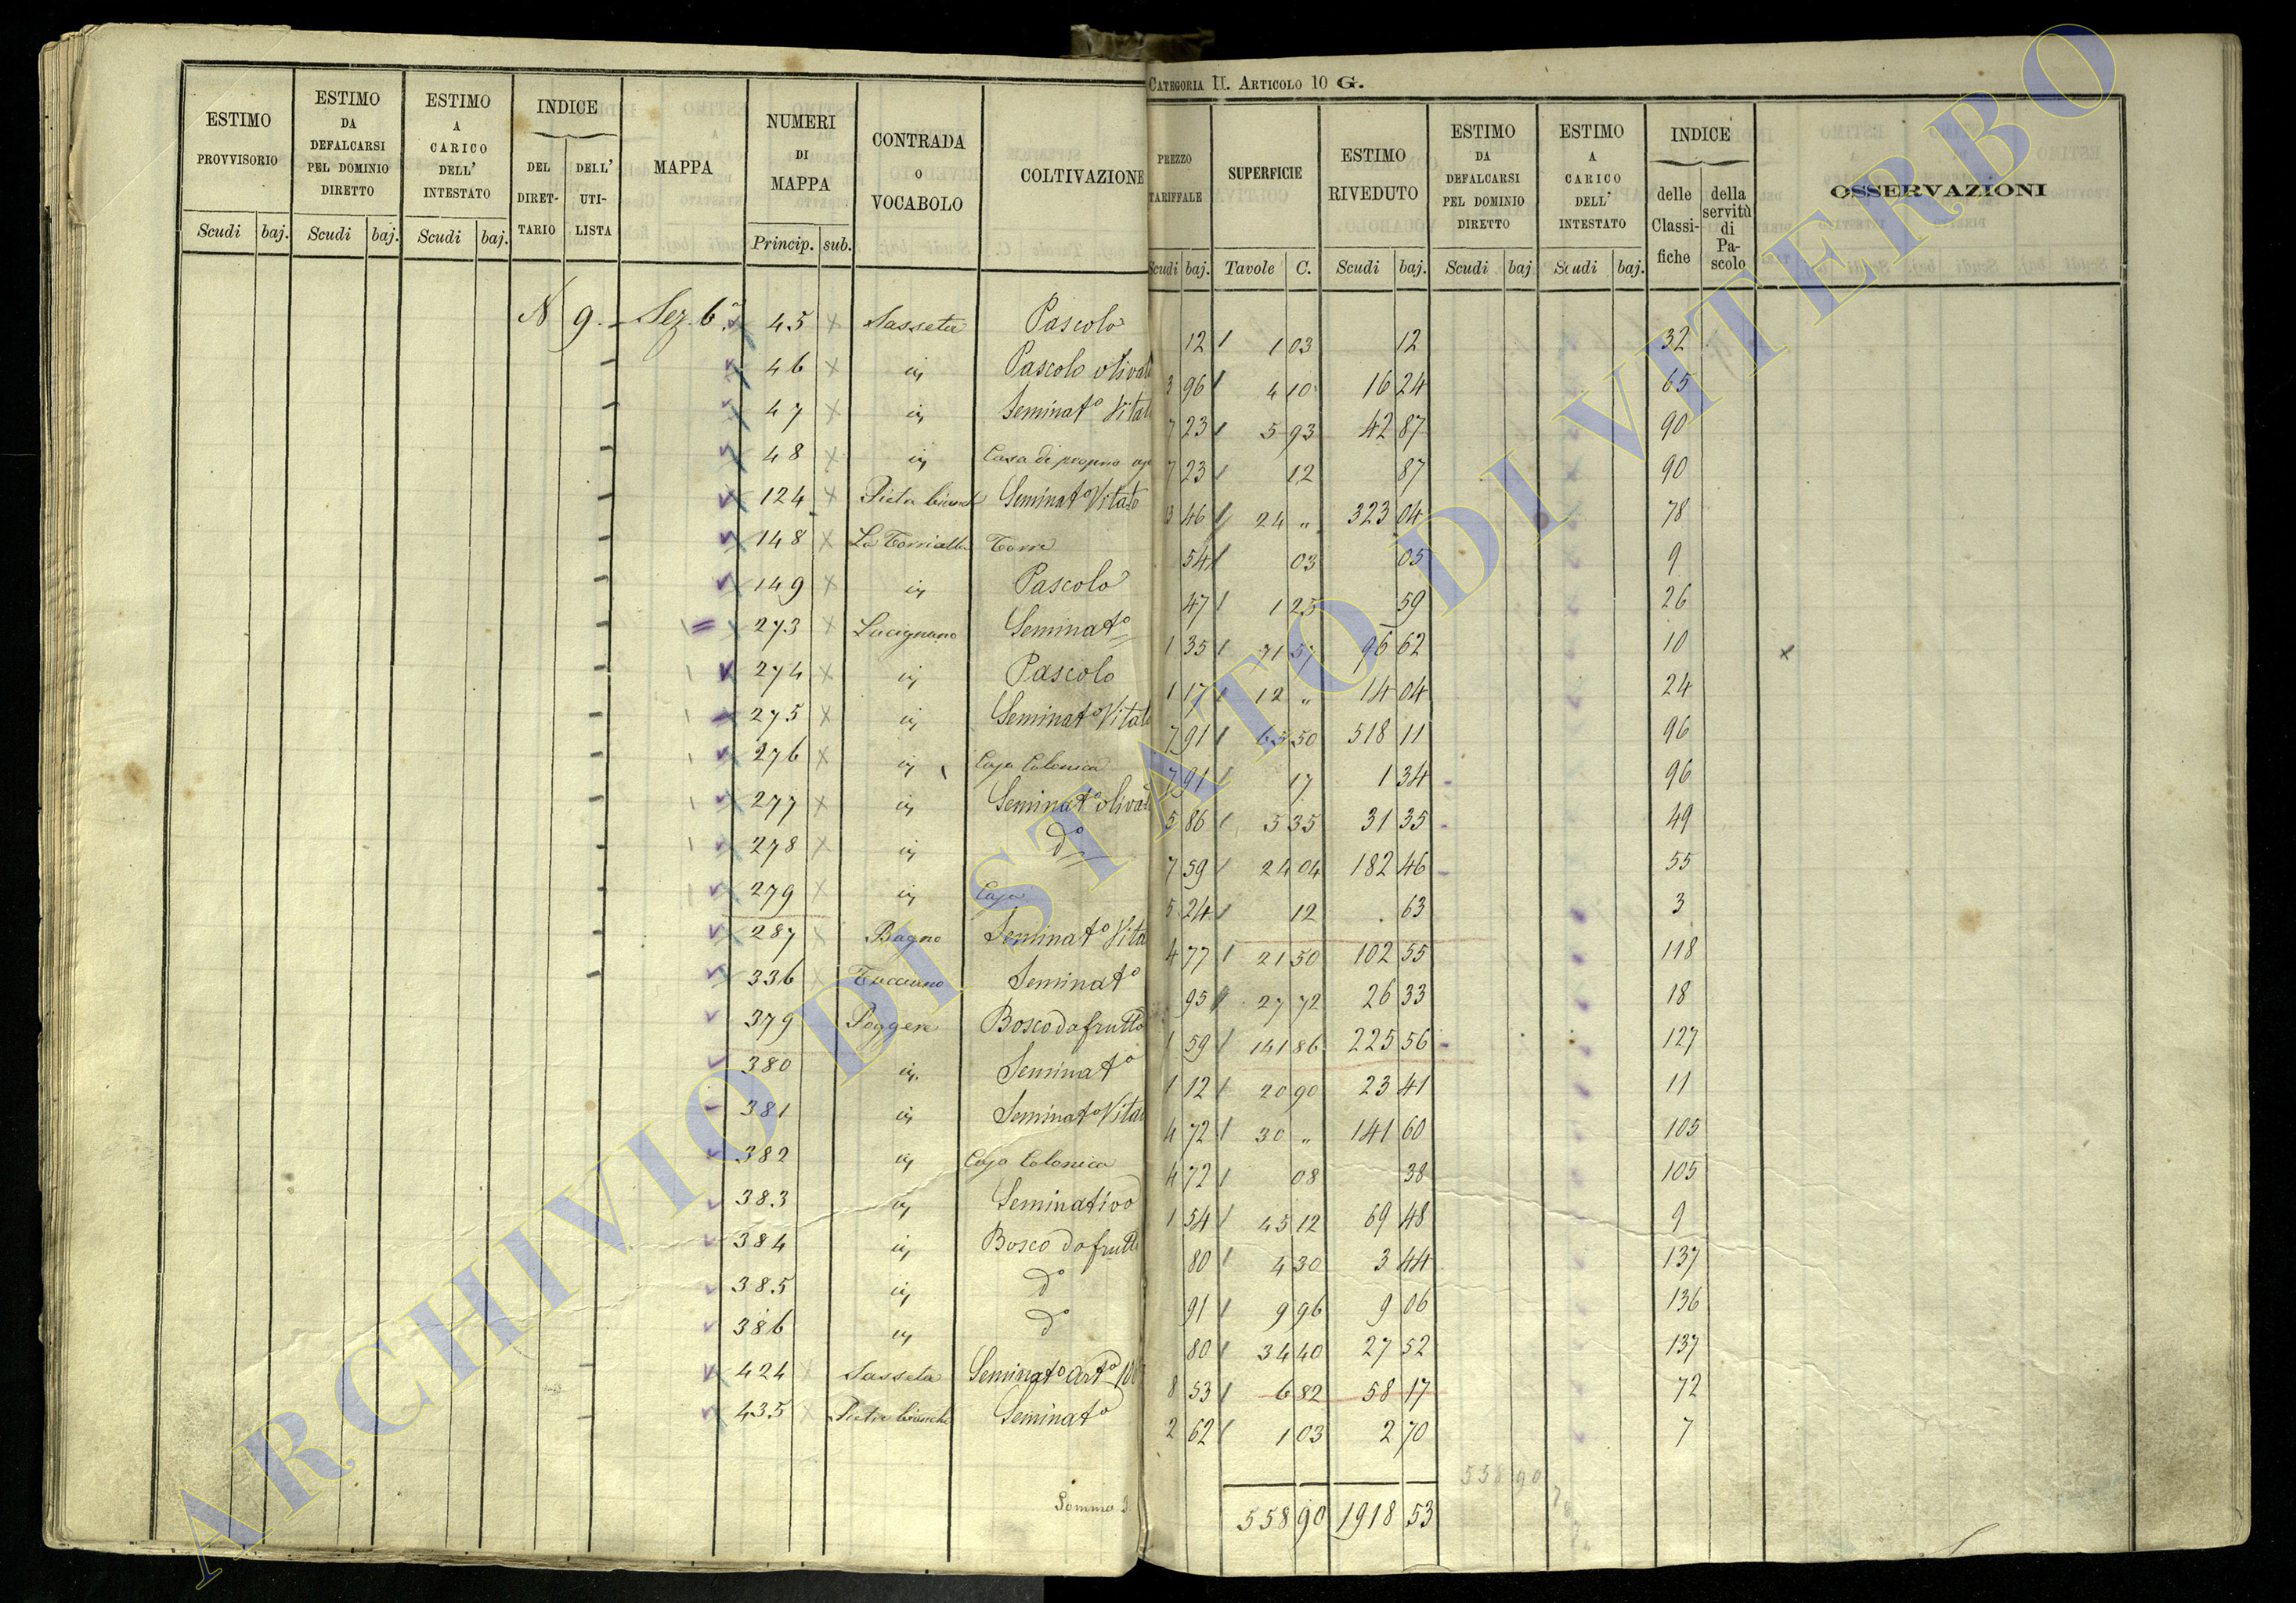 CATEGORIA II. ARTICOLO 10 G.
ESTIMO PROVVISORIO
ESTIMO DA DEFALCARSI PEL DOMINIO DIRETTO
ESTIMO A CARICO DELL' INTESTATO
INDICE
DEL DIRETTARIO
DELL' UTILISTA
MAPPA
NUMERI DI MAPPA
CONTRADA O VOCABOLO
COLTIVAZIONE
PREZZO TARIFFALE
SUPERFICIE
ESTIMO RIVEDUTO
ESTIMO DA DEFALCARSI PEL DOMINIO DIRETTO
ESTIMO A CARICO DELL' INTESTATO
INDICE
delle Classifiche
della servitù di Pascolo
OSSERVAZIONI
Scudi baj. Scudi baj. Scudi baj. Princip. sub. Scudi baj. Tavole C. Scudi baj. Scudi baj Scudi baj.
N 9. Sez. 6ª 45 Sasseta Pascolo 12 1 03 12 32
46 in Pascolo olivato 3 96 4 10 16 24 65
47 in Seminato Vitato 7 23 5 93 42 87 90
48 in Casa di proprio 7 23 12 87 90
124 Seminato Vitato 3 46 24 " 323 04 78
148 Torre 54 03 05 9
149 in Pascolo 47 1 25 59 26
273 Lucignano Seminato 1 35 71 57 96 62 10 x
274 in Pascolo 1 17 12 " 14 04 24
275 in Seminato Vitato 7 91 65 50 518 11 96
276 in Casa Colonica 7 91 17 1 34 96
277 in Seminato olivato 5 86 5 35 31 35 49
278 in dº 7 59 24 04 182 46 55
279 in Casa 5 24 12 63 3
287 Bagno Seminato Vita 4 77 21 50 102 55 118
336 Tucciano Seminato 95 27 72 26 33 18
379 Poggere Bosco da frutto 1 59 141 86 225 56 127
380 in Seminato 1 12 20 90 23 41 11
381 in Seminato Vitato 4 72 30 " 141 60 105
382 in Casa Colonica 4 72 08 38 105
383 in Seminativo 1 54 45 12 69 48 9
384 in Bosco da frutto 80 4 30 3 44 137
385 in dº 91 9 96 9 06 136
386 in dº 80 34 40 27 52 137
424 Sasseta Seminato Artº 8 53 6 82 58 17 72
435 Seminato 2 62 1 03 2 70 7
558 90
Somma 558 90 1918 53
ARCHIVIO DI STATO DI VITERBO